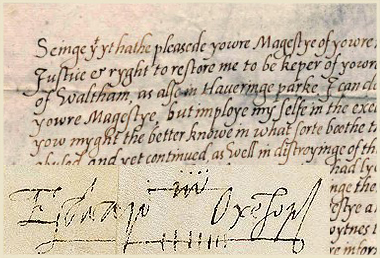 Seinge yt yt hathe pleasede yowre Magestye of yowre
Justice & ryght to restore me to be keper of yowr
of Waltham, as alse in Haueringe parke, I can do
yowre Magestye, but imploye my selfe in the exe
yow myght the better knowe in what sorte boethe th
abused and yet continued, as well in distroyinge of th
had ly
nge the
estye a
oytnes t
re inform
Edward Oxeford